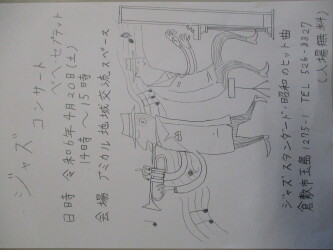 ジャズ
コンサート
ベベセゼデット
日時 令和6年4月20日(土)
14時〜15時
会場 アミカル地域交流スペース
ジャズスタンダード・昭和のヒット曲
倉敷市玉島1275-1 TEL 526-8827
(入場無料)